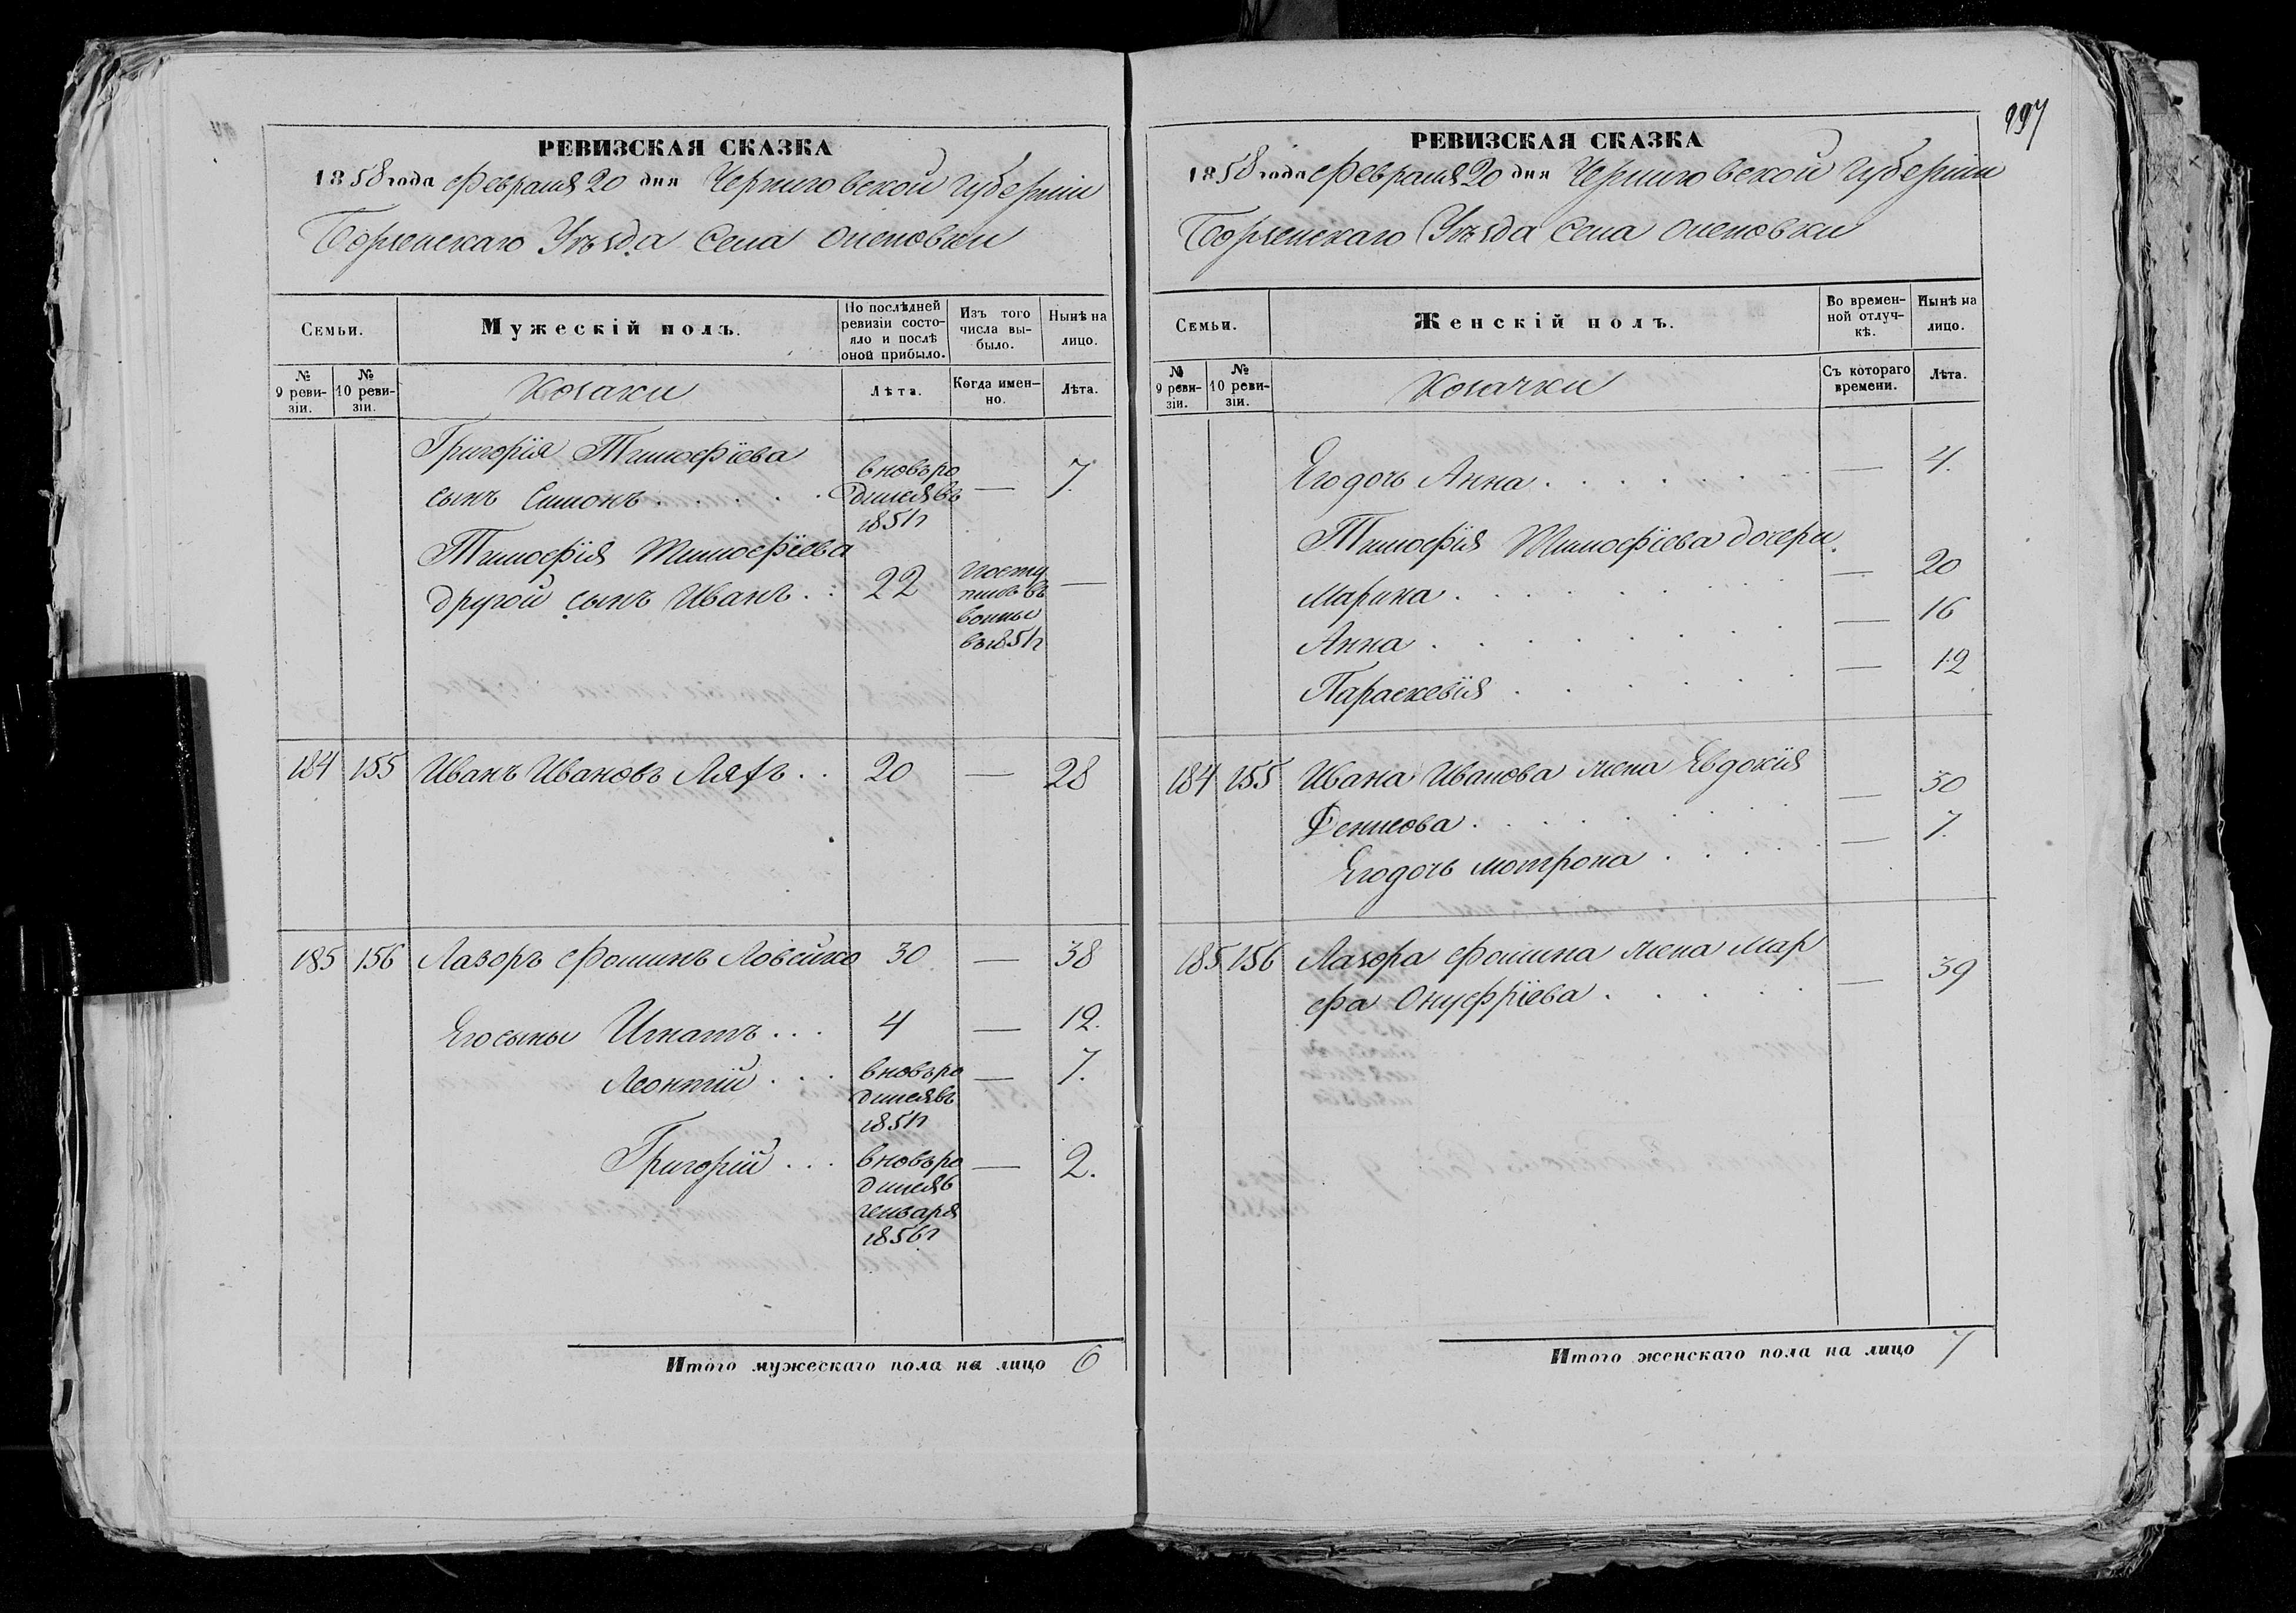 РЕВИЗСКАЯ СКАЗКА
1858 года февраля 20 дня Черниговской губернии
Борзенскаго Уѣзда Села
Семьи.
Мужескій полъ.
По послѣдней ревизіи состояло и послѣ оной прибыло.
Изъ того числа выбыло.
Нынѣ на лицо.
№ 9 ревизіи.
№ 10 ревизіи.
Козаки
Лѣта.
Когда именно.
Лѣта.
Григорія Тимофіева
сынъ Симонъ . . . . . вновь родился въ 1851 г — 7.
Тимофія Тимофіева
другой сынъ Иванъ . : 22 поступилъ въ воины въ 1851 г —
184 155 Иванъ Ивановъ . . 20 — 28
185 156 Лазоръ Фоминъ Ловейко 30 — 38
Его сыны Игнатъ . . . 4 — 12.
Леонтій . . . вновь родился въ 1851 г — 7.
Григорій . . . вновь родился генваря 1856 г — 2.
Итого мужескаго пола на лицо 6
997
РЕВИЗСКАЯ СКАЗКА
1858 года февраля 20 дня Черниговской губернии
Борзенскаго Уѣзда Села
Семьи.
Женскій полъ.
Во временной отлучкѣ.
Нынѣ на лицо.
№ 9 ревизіи.
№ 10 ревизіи.
Козачки
Съ котораго времени.
Лѣта.
Его дочь Анна . . . . . . . — 4.
Тимофія Тимофіева дочери
Марина . . . . . . . — 20
Анна . . . . . . . — 16
Параскевія . . . . . . — 12
184 155 Ивана Иванова жена Евдокія
Денисова . . . . . . . — 30
Его дочь мотрона . . . . . — 7.
185 156 Лазора Фомина жена Мар
фа Онуфріева . . . . . — 39
Итого женскаго пола на лицо 7